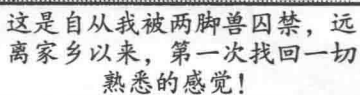 这是自从我被两脚兽囚禁，远
离家乡以来，第一次找回一切
熟悉的感觉！